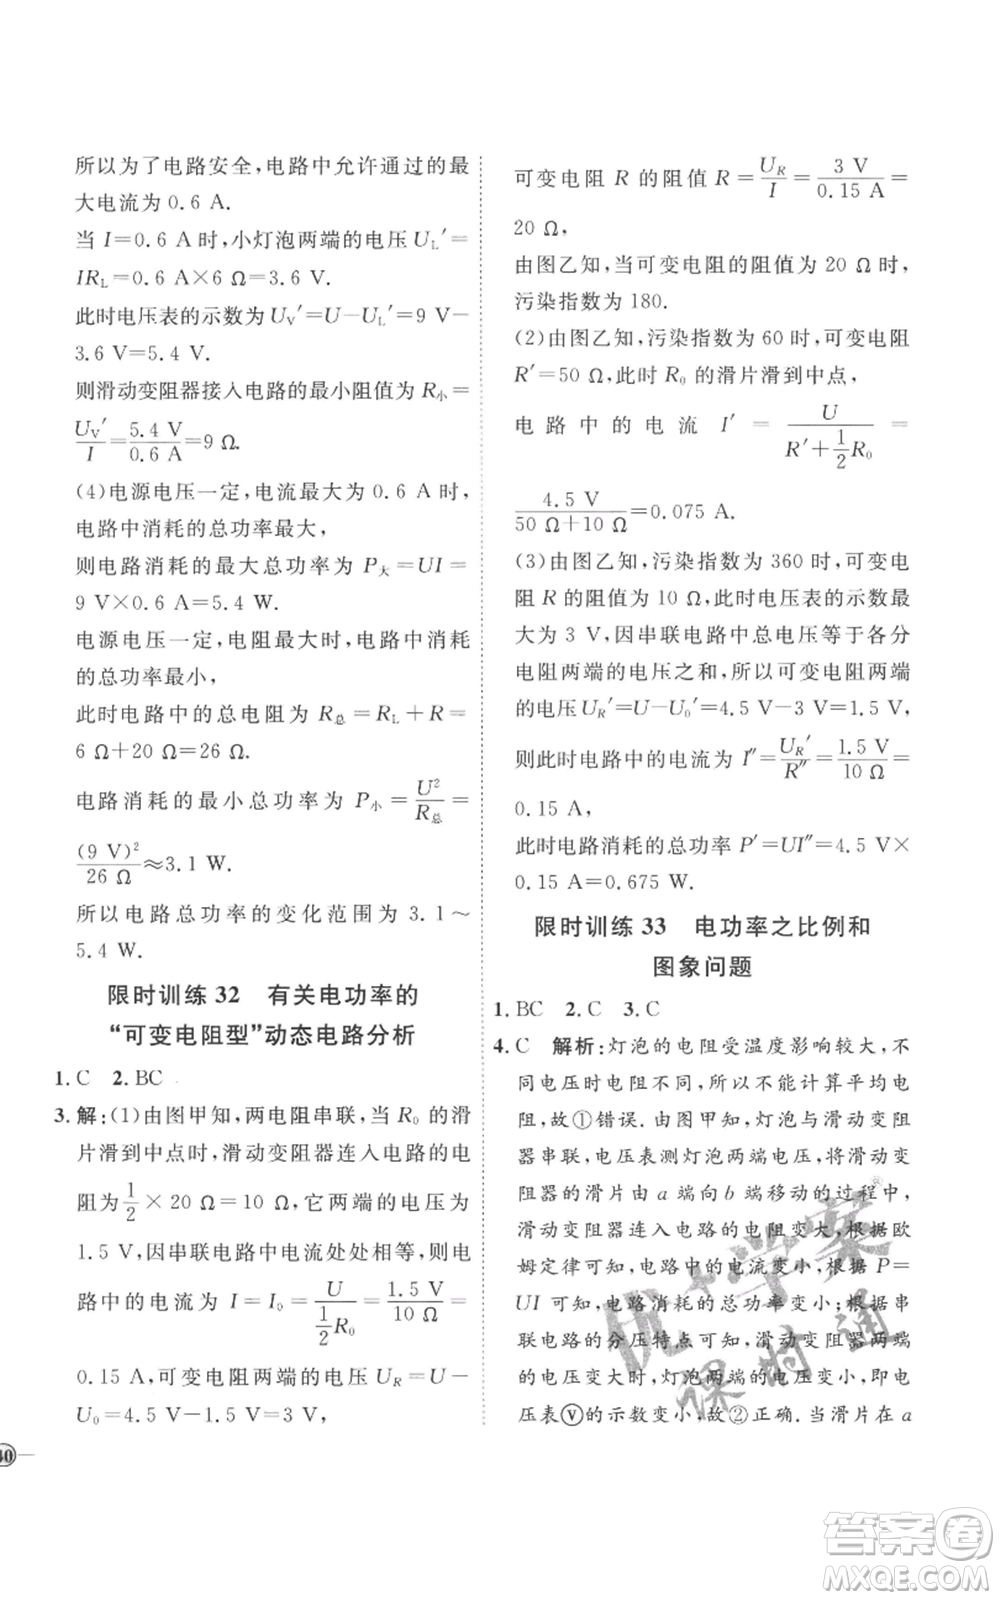 所以为了电路安全,电路中允许通过的最
大电流为 0.6 A.
当 I=0.6 A 时,小灯泡两端的电压 U_L′=
IR_L=0.6 A×6 Ω=3.6 V.
此时电压表的示数为 U_V′=U-U_L′=9 V-
3.6 V=5.4 V.
则滑动变阻器接入电路的最小阻值为 R_小=
U_V′/I=5.4 V/0.6 A=9 Ω.
(4)电源电压一定,电流最大为 0.6 A 时,
电路中消耗的总功率最大,
则电路消耗的最大总功率为 P_大=UI=
9 V×0.6 A=5.4 W.
电源电压一定,电阻最大时,电路中消耗
的总功率最小,
此时电路中的总电阻为 R_总=R_L+R=
6 Ω+20 Ω=26 Ω.
电路消耗的最小总功率为 P_小=U²/R_总=
(9 V)²/26 Ω≈3.1 W.
所以电路总功率的变化范围为 3.1～
5.4 W.
限时训练 32 有关电功率的
“可变电阻型”动态电路分析
1. C 2. BC
3. 解:(1)由图甲知,两电阻串联,当 R₀ 的滑
片滑到中点时,滑动变阻器连入电路的电
阻为 1/2×20 Ω=10 Ω,它两端的电压为
1.5 V,因串联电路中电流处处相等,则电
路中的电流为 I=I₀=U/(1/2 R₀)=1.5 V/10 Ω=
0.15 A,可变电阻两端的电压 U_R=U-
U₀=4.5 V-1.5 V=3 V,
40
可变电阻 R 的阻值 R=U_R/I=3 V/0.15 A=
20 Ω,
由图乙知,当可变电阻的阻值为 20 Ω 时,
污染指数为 180.
(2)由图乙知,污染指数为 60 时,可变电阻
R′=50 Ω,此时 R₀ 的滑片滑到中点,
电路中的电流 I′=U/(R′+1/2 R₀)=
4.5 V/(50 Ω+10 Ω)=0.075 A.
(3)由图乙知,污染指数为 360 时,可变电
阻 R 的阻值为 10 Ω,此时电压表的示数最
大为 3 V,因串联电路中总电压等于各分
电阻两端的电压之和,所以可变电阻两端
的电压 U_R′=U-U₀′=4.5 V-3 V=1.5 V,
则此时电路中的电流为 I″=U_R′/R″=1.5 V/10 Ω=
0.15 A,
此时电路消耗的总功率 P′=UI″=4.5 V×
0.15 A=0.675 W.
限时训练 33 电功率之比例和
图象问题
1. BC 2. C 3. C
4. C 解析:灯泡的电阻受温度影响较大,不
同电压时电阻不同,所以不能计算平均电
阻,故①错误.由图甲知,灯泡与滑动变阻
器串联,电压表测灯泡两端电压,滑动变
阻器的滑片由 a 端向 b 端移动的过程中,
滑动变阻器连入电路的电阻变大,根据欧
姆定律可知,电路中的电流变小,根据 P=
UI 可知,电路消耗的总功率变小;根据串
联电路的分压特点可知,滑动变阻器两端
的电压变大,灯泡两端的电压变小,即电
压表Ⓥ的示数变小,故②正确.当滑片在 a
优+学案
课时通
®
答案卷
MXQE.COM